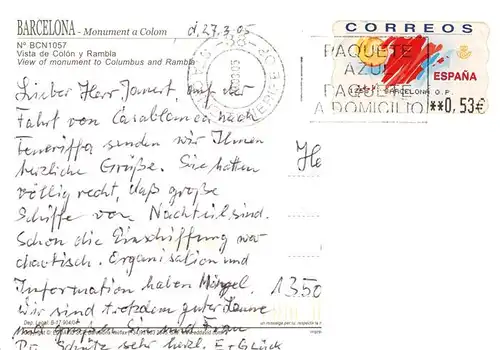 BARCELONA - Monument a Colom
Nº BCN1057
Vista de Colón y Rambla
View of monument to Columbus and Rambla
d, 27.3.05
CORREOS
ESPAÑA
BARCELONA O.P.
**0,53€
PAQUETE
AZUL
PAQUETE
A DOMICILIO
Lieber Herr, auf der
Fahrt von Casablanca nach
Teneriffa senden wir Ihnen
herzliche Grüße. Sie hatten
völlig recht, daß große
Schiffe von Nachteil sind.
Schon die Einschiffung war
chaotisch. Organisation und
Information haben Mängel.
Wir sind trotzdem guter Laune
und grüßen Sie und Frau
sehr herzl.
He
1350